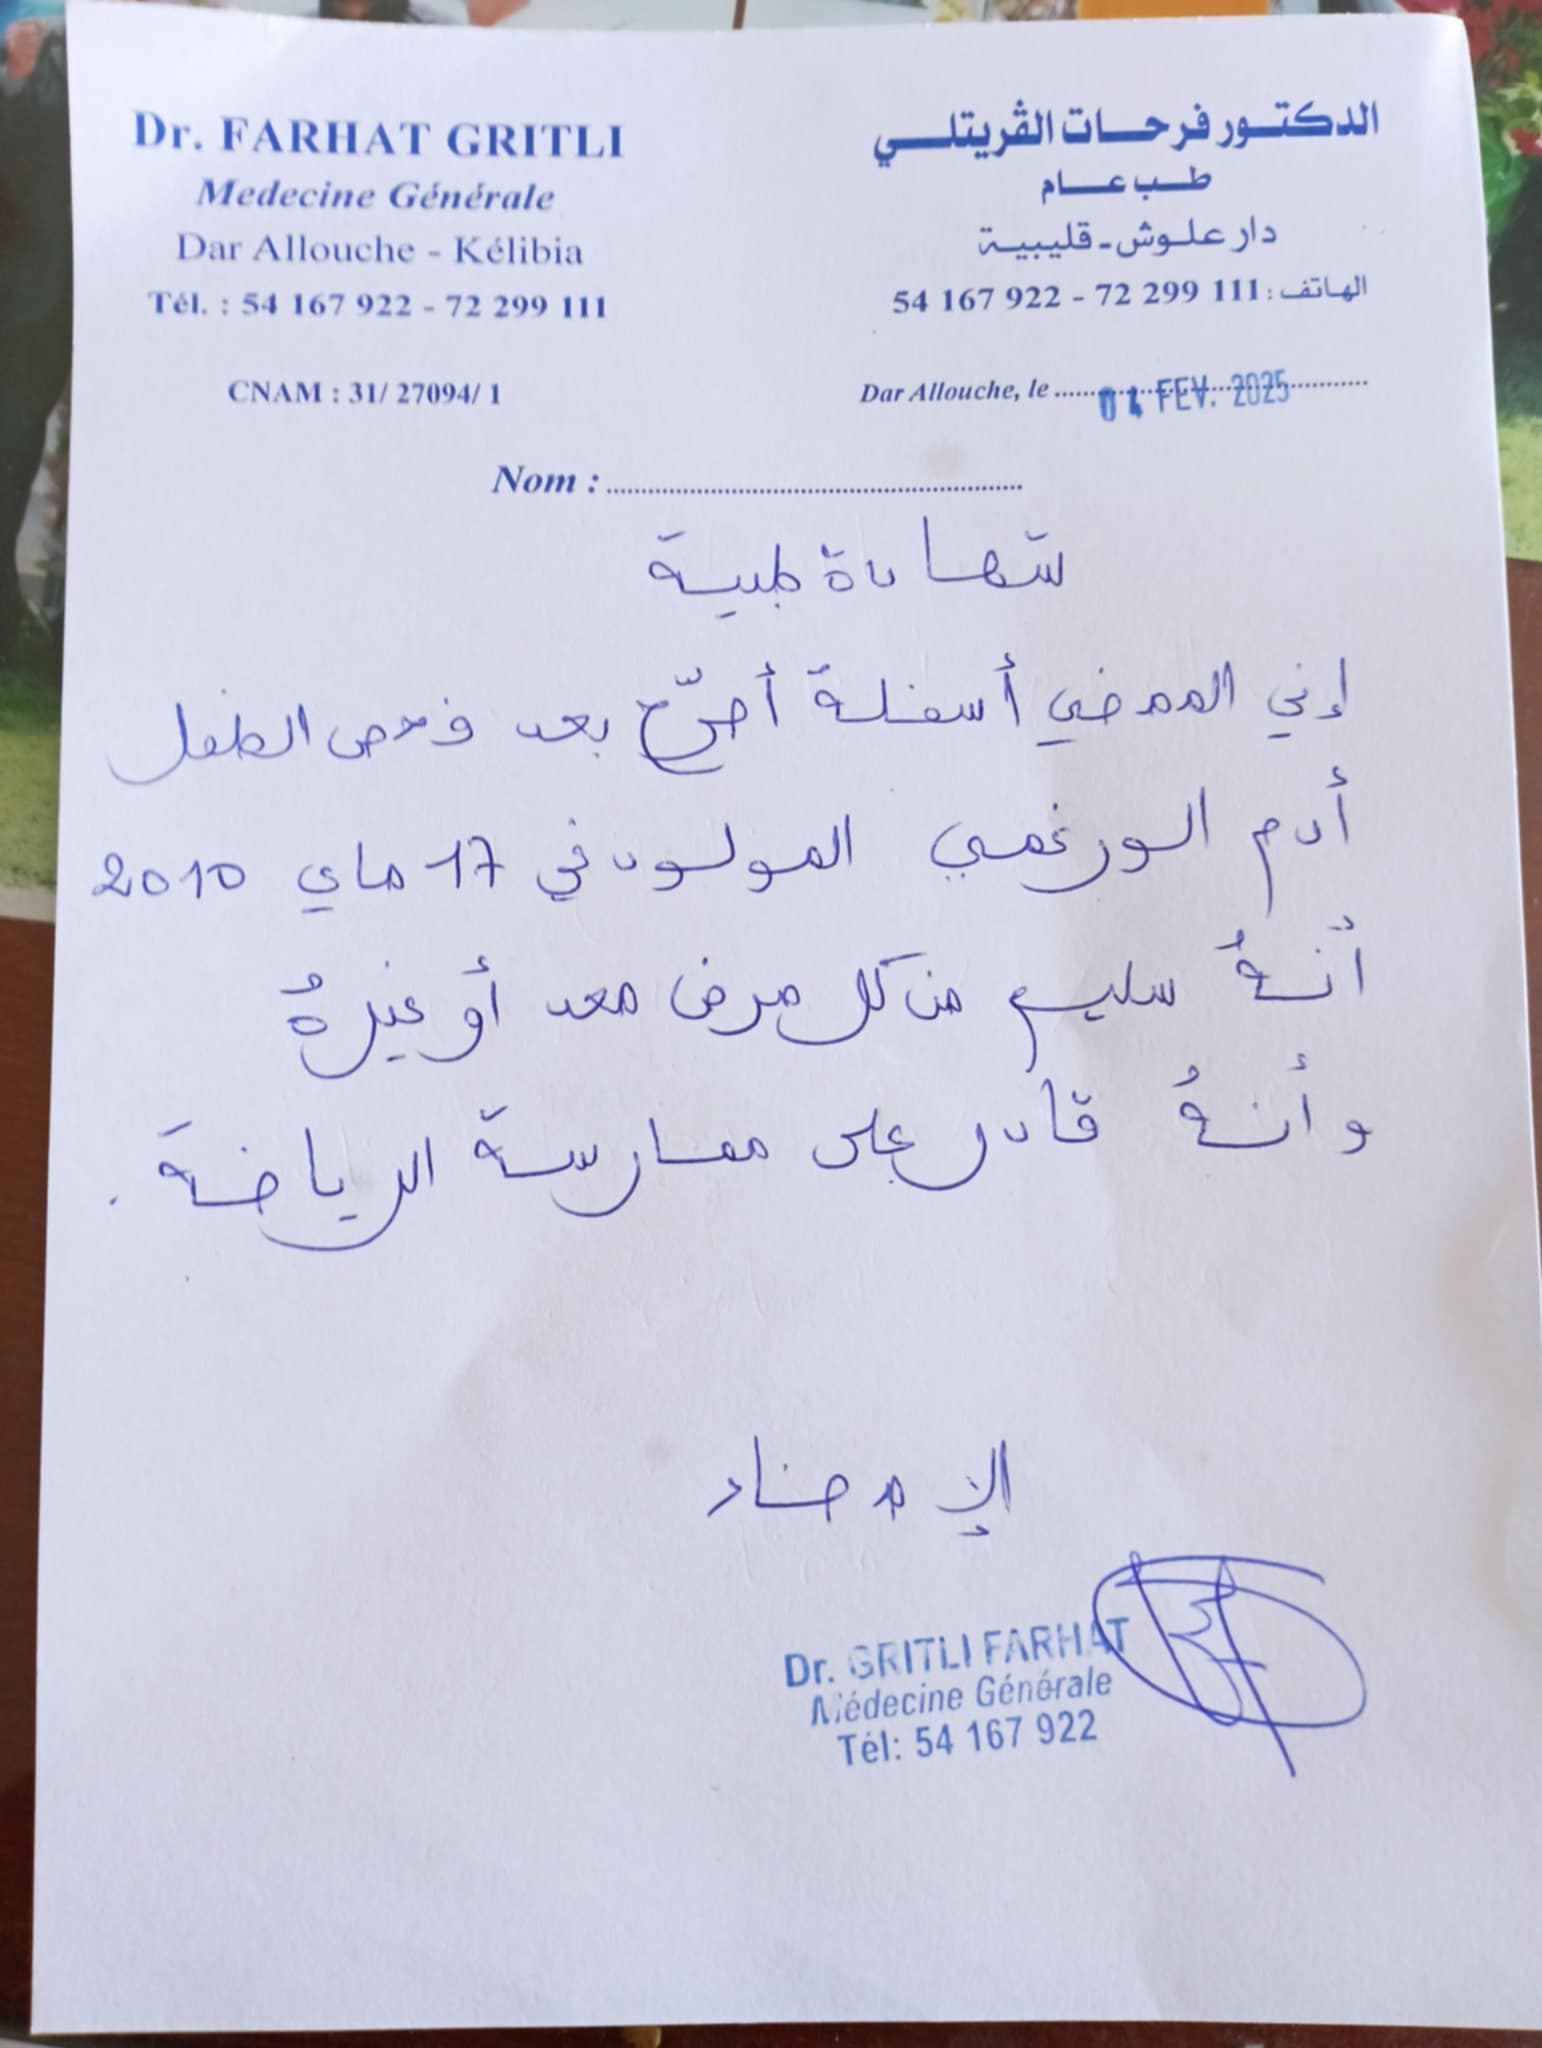 Dr. FARHAT GRITLI
Medecine Générale
Dar Allouche - Kélibia
Tél. : 54 167 922 - 72 299 111
CNAM : 31/ 27094/ 1
الدكتور فرحات الڤريتلي
طب عام
دار علوش - قليبية
الهاتف : 111 299 72 - 922 167 54
Dar Allouche, le 04 FEV. 2025
Nom :
شهادة طبية
إني الممضي أسفله أصرّح بعد فحص الطفل
أدم الورغمي المولود في 17 ماي 2010
أنهُ سليم من كل مرض معد أو غيرهُ
وأنهُ قادر على ممارسة الرياضة.
الإمضاء
Dr. GRITLI FARHAT
Médecine Générale
Tél: 54 167 922